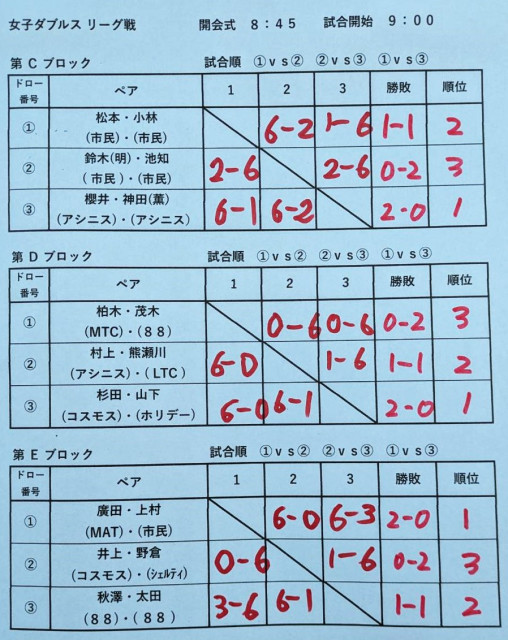 女子ダブルス リーグ戦 開会式 8:45 試合開始 9:00
第Cブロック 試合順 ①vs② ②vs③ ①vs③
ドロー番号 ペア 1 2 3 勝敗 順位
① 松本・小林 6-2 1-6 1-1 2
(市民)・(市民)
② 鈴木(明)・池知 2-6 2-6 0-2 3
(市民)・(市民)
③ 櫻井・神田(薫) 6-1 6-2 2-0 1
(アシニス)・(アシニス)
第Dブロック 試合順 ①vs② ②vs③ ①vs③
ドロー番号 ペア 1 2 3 勝敗 順位
① 柏木・茂木 0-6 0-6 0-2 3
(MTC)・(88)
② 村上・熊瀬川 6-0 1-6 1-1 2
(アシニス)・(LTC)
③ 杉田・山下 6-0 6-1 2-0 1
(コスモス)・(ホリデー)
第Eブロック 試合順 ①vs② ②vs③ ①vs③
ドロー番号 ペア 1 2 3 勝敗 順位
① 廣田・上村 6-0 6-3 2-0 1
(MAT)・(市民)
② 井上・野倉 0-6 1-6 0-2 3
(コスモス)・(シェルティ)
③ 秋澤・太田 3-6 6-1 1-1 2
(88)・(88)